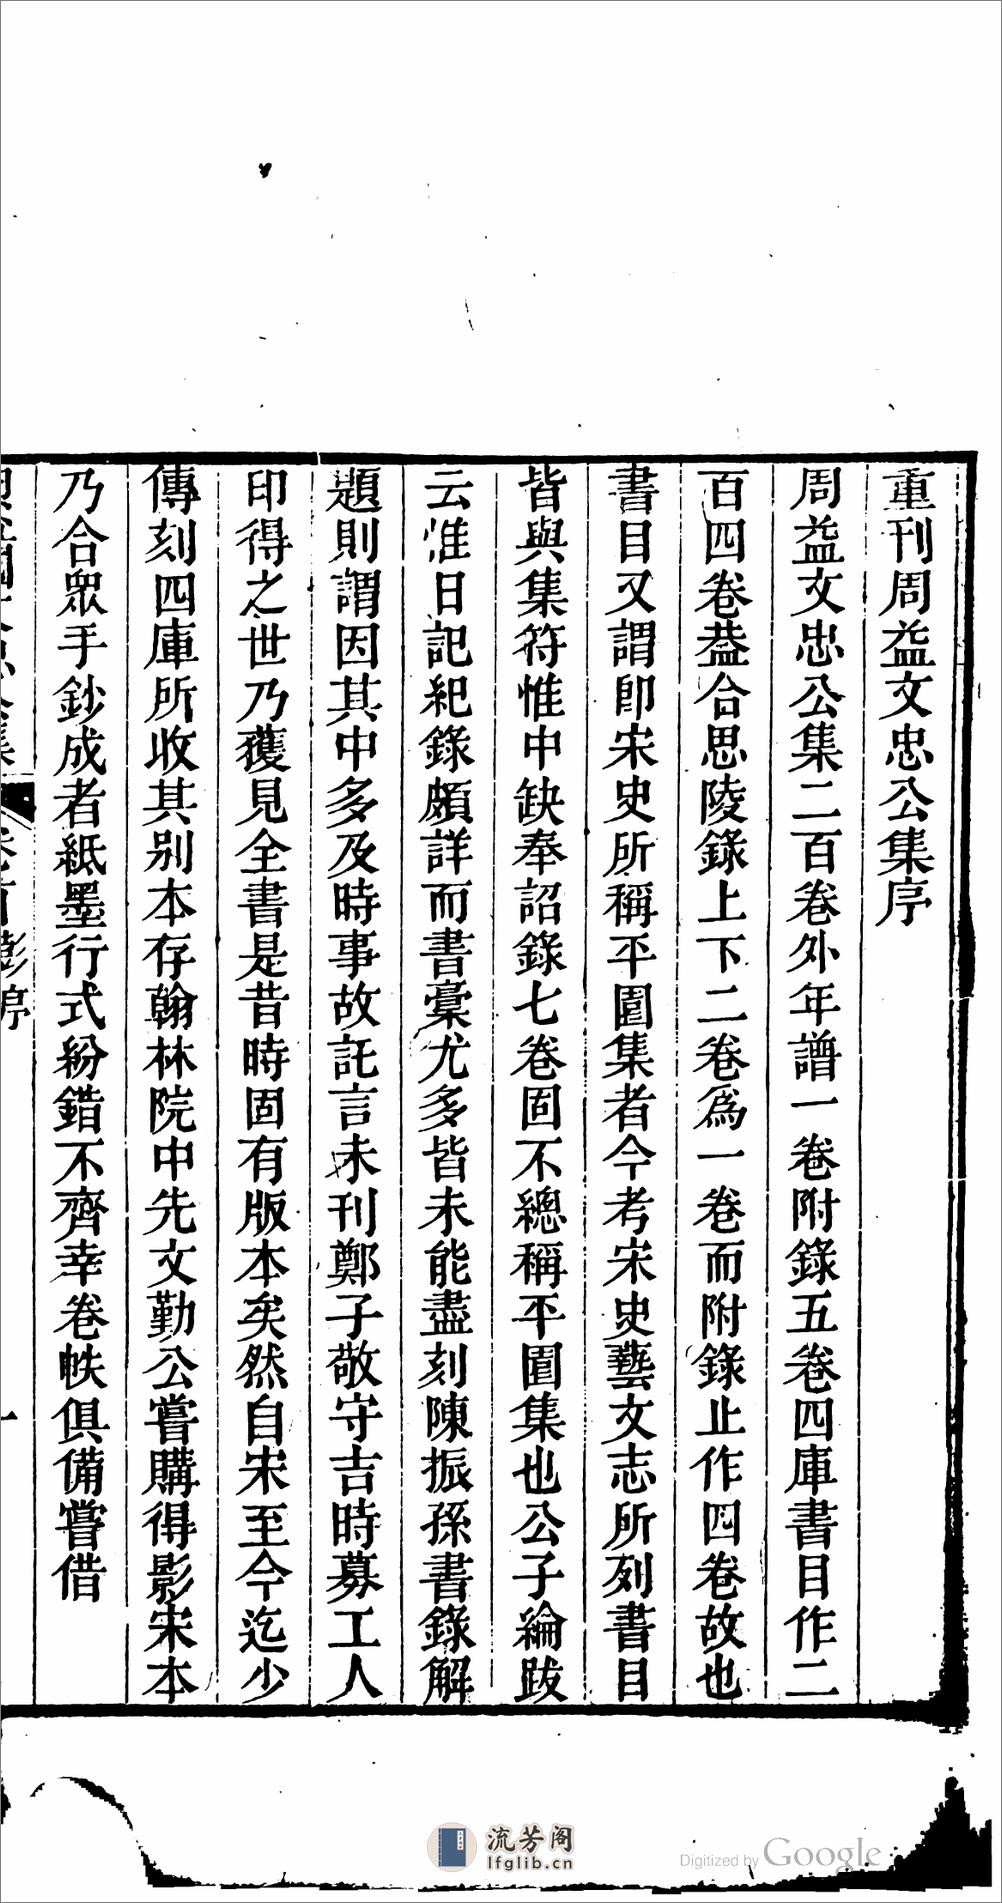 重刊周益文忠公集序
周益文忠公集二百卷外年譜一卷附錄五卷四庫書目作二
百四卷葢合思陵錄上下二卷爲一卷而附錄止作四卷故也
書目又謂卽宋史所稱平園集者今考宋史藝文志所列書目
皆與集符惟中缺奉詔錄七卷固不總稱平園集也公子綸跋
云惟日記紀錄頗詳而書稾尤多皆未能盡刻陳振孫書錄解
題則謂因其中多及時事故託言未刊鄭子敬守吉時募工人
印得之世乃獲見全書是昔時固有版本矣然自宋至今迄少
傳刻四庫所收其别本存翰林院中先文勤公嘗購得影宋本
乃合眾手鈔成者紙墨行式紛錯不齊幸卷帙俱備嘗借
彭序
一
流芳阁
lfglib.cn
Digitized by Google